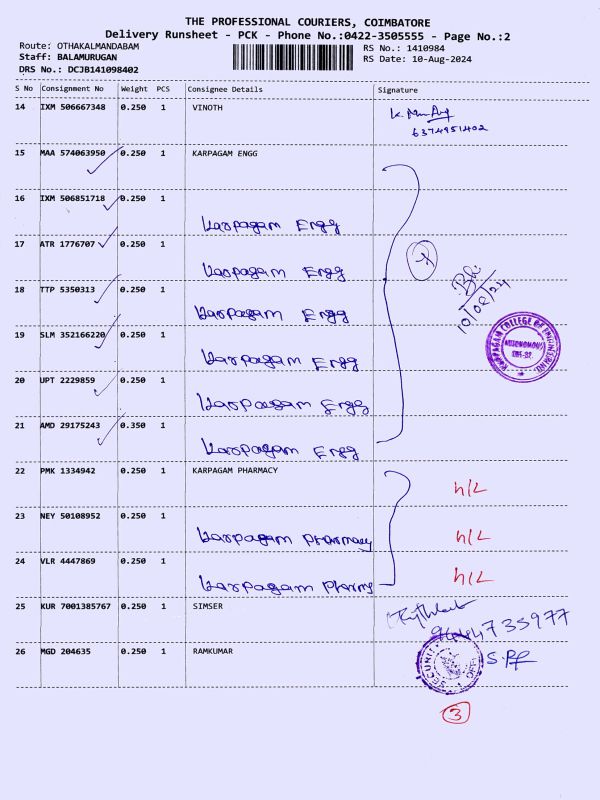 THE PROFESSIONAL COURIERS, COIMBATORE
Delivery Runsheet - PCK - Phone No.:0422-3505555 - Page No.:2
Route: OTHAKALMANDABAM
Staff: BALAMURUGAN
DRS No.: DCJB141098402
RS No.: 1410984
RS Date: 10-Aug-2024
S No Consignment No Weight PCS Consignee Details Signature
14 IXM 506667348 0.250 1 VINOTH
6374951402
15 MAA 574063950 0.250 1 KARPAGAM ENGG
16 IXM 506851718 0.250 1 Karpagam Engg
17 ATR 1776707 0.250 1 Karpagam Engg
18 TTP 5350313 0.250 1 Karpagam Engg
10/08/24
19 SLM 352166220 0.250 1 Karpagam Engg
KARPAGAM COLLEGE OF ENGINEERING
AUTONOMOUS
20 UPT 2229859 0.250 1 Karpagam Engg
21 AMD 29175243 0.350 1 Karpagam Engg
22 PMK 1334942 0.250 1 KARPAGAM PHARMACY h/L
23 NEY 50108952 0.250 1 Karpagam Pharmacy h/L
24 VLR 4447869 0.250 1 Karpagam Pharmy h/L
25 KUR 7001385767 0.250 1 SIMSER
26 MGD 204635 0.250 1 RAMKUMAR
SECURITY
3